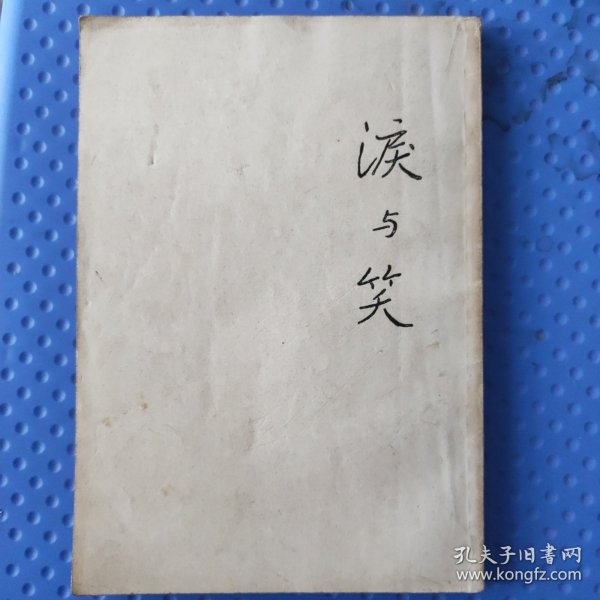 淚与笑
孔夫子旧書网
www.kongfz.com